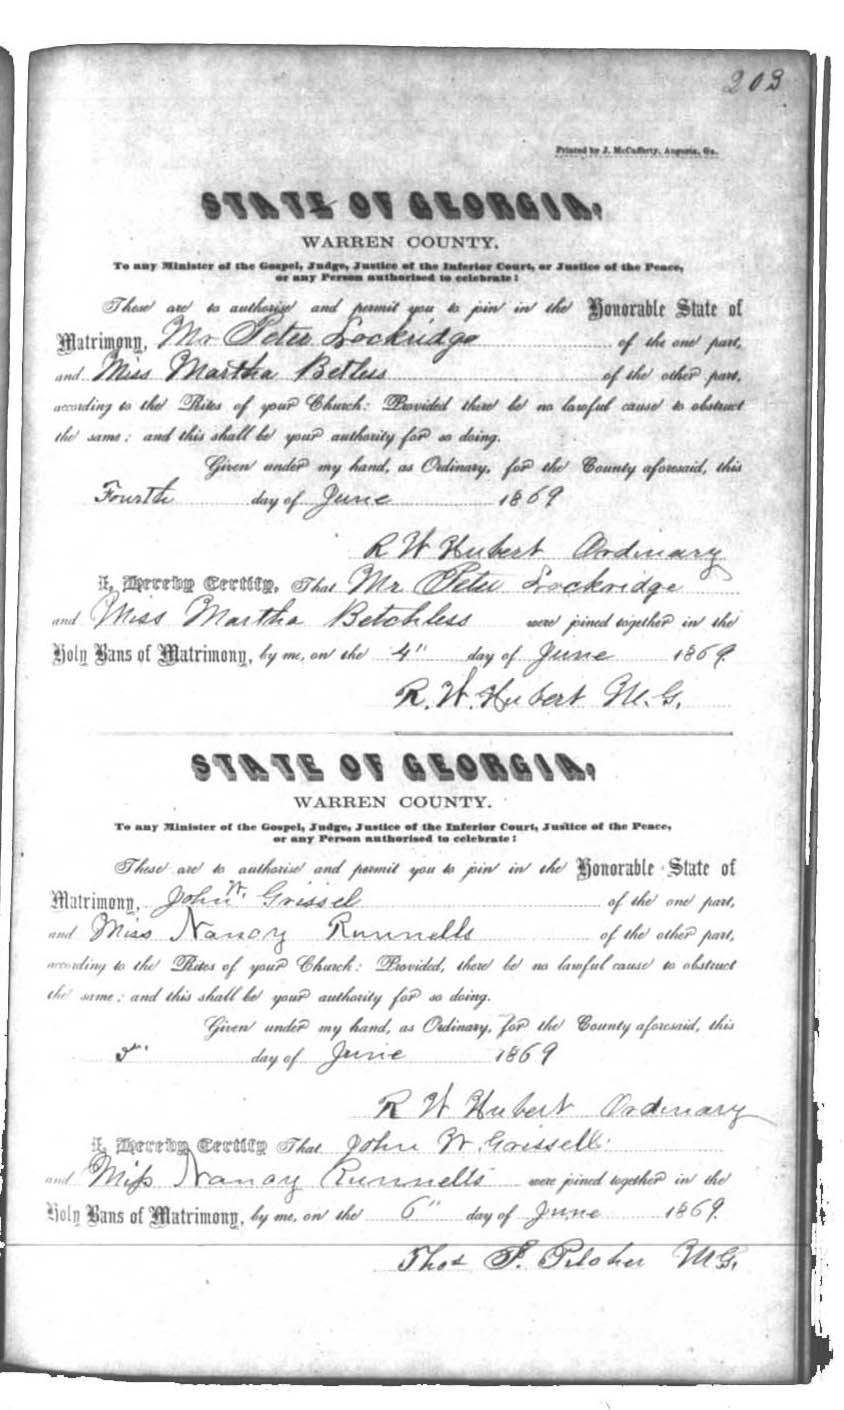 203
Printed by J. McCafferty, Augusta, Ga.
STATE OF GEORGIA,
WARREN COUNTY.
To any Minister of the Gospel, Judge, Justice of the Inferior Court, or Justice of the Peace,
or any Person authorised to celebrate:
These are to authorise and permit you to join in the Honorable State of
Matrimony, Mr Peter Lockridge of the one part,
and Miss Martha Betless of the other part,
according to the Rites of your Church: Provided there be no lawful cause to obstruct
the same: and this shall be your authority for so doing.
Given under my hand, as Ordinary, for the County aforesaid, this
Fourth day of June 1869
R W Hubert Ordinary
I, Hereby Certify, That Mr. Peter Lockridge
and Miss Martha Betchless were joined together in the
Holy Bans of Matrimony, by me, on the 4" day of June 1869.
R. W. Hubert M.G.
STATE OF GEORGIA,
WARREN COUNTY.
To any Minister of the Gospel, Judge, Justice of the Inferior Court, Justice of the Peace,
or any Person authorised to celebrate:
These are to authorise and permit you to join in the Honorable State of
Matrimony, John W. Grissel of the one part,
and Miss Nancy Runnells of the other part,
according to the Rites of your Church: Provided, there be no lawful cause to obstruct
the same: and this shall be your authority for so doing.
Given under my hand, as Ordinary, for the County aforesaid, this
day of June 1869
R W Hubert Ordinary
I, Hereby Certify That John W. Grissell
and Miss Nancy Runnells were joined together in the
Holy Bans of Matrimony, by me, on the 6" day of June 1869.
Thos F. Pilcher MG.